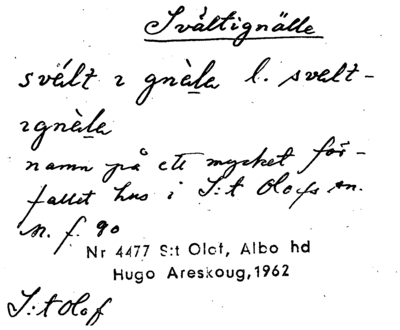 Svältignälle
svält ı gnèla l. svelt-
ıgnèla
namn på ett mycket för-
fallet hus i S:t Olofs sn.
M. f. 90
Nr 4477 S:t Olof, Albo hd
Hugo Areskoug, 1962
S:t Olof